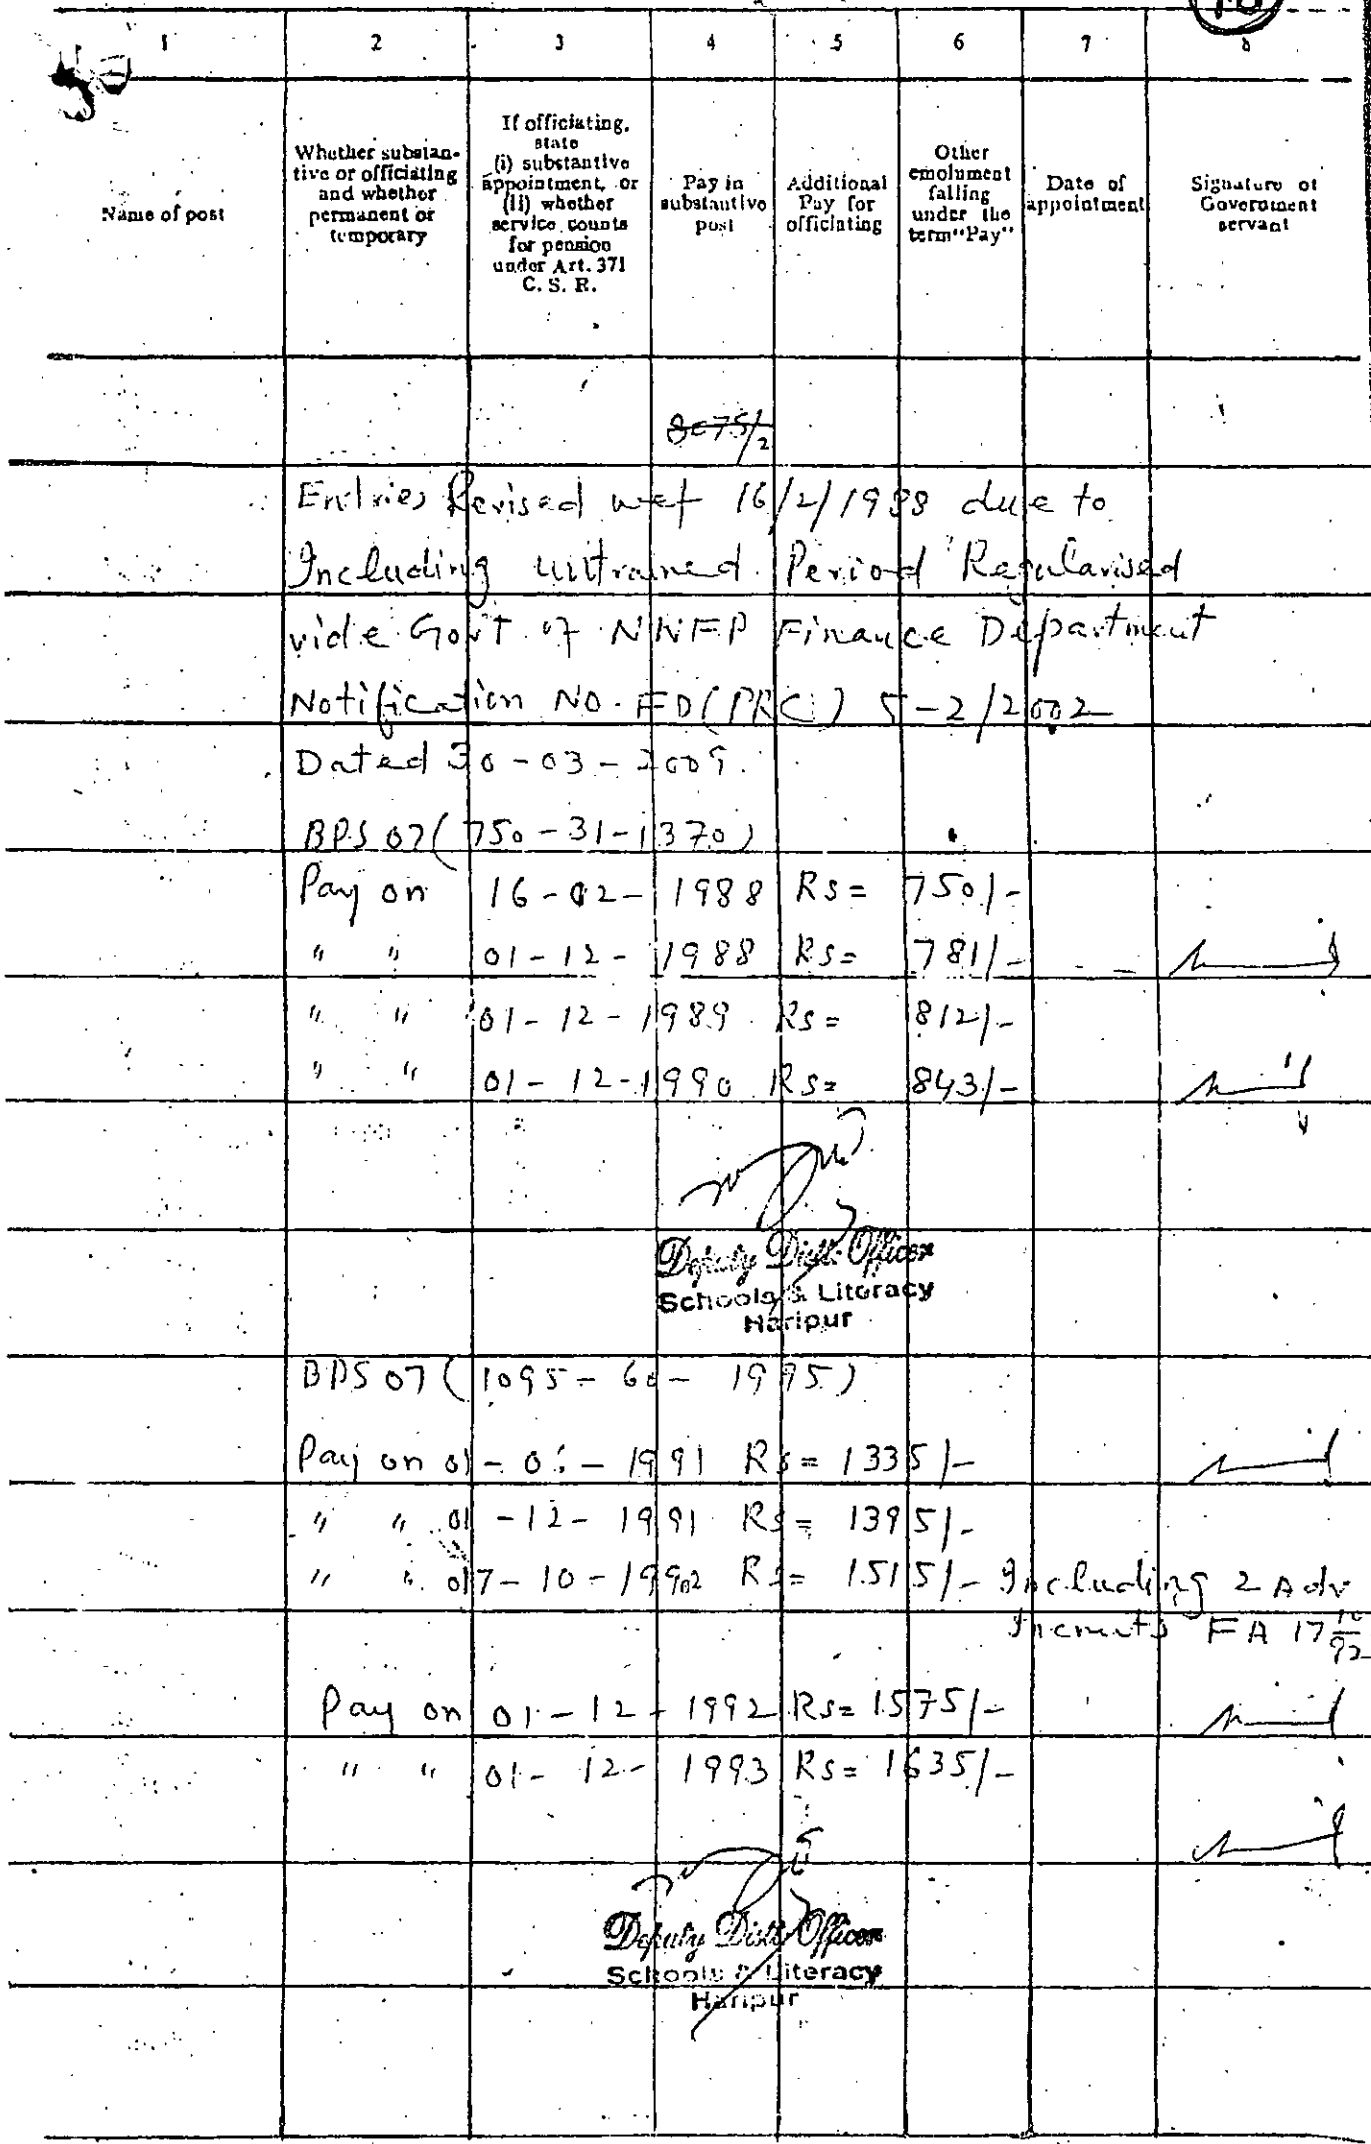 1 2 3 4 5 6 7 8
Name of post
Whether substan-
tive or officiating
and whether
permanent or
temporary
If officiating,
state
(i) substantive
appointment, or
(ii) whether
service counts
for pension
under Art. 371
C. S. R.
Pay in
substantive
post
Additional
Pay for
officiating
Other
emolument
falling
under the
term "Pay"
Date of
appointment
Signature of
Government
servant
Entries Revised wef 16/2/1988 due to
Including untrained Period Regularised
vide Govt of NWFP Finance Department
Notification NO. FD(PRC) 5-2/2002
Dated 30-03-2009.
BPS 07 (750-31-1370)
Pay on 16-02-1988 Rs= 750/-
" " 01-12-1988 Rs= 781/-
" " 01-12-1989 Rs= 812/-
" " 01-12-1990 Rs= 843/-
Deputy Distt: Officer
Schools & Literacy
Haripur
BPS 07 (1095-60-1995)
Pay on 01- -1991 Rs= 1335/-
" " 01-12-1991 Rs= 1395/-
" " 17-10-1992 Rs= 1515/- Including 2 Adv
FA 17 10/92
Pay on 01-12-1992 Rs= 1575/-
" " 01-12-1993 Rs= 1635/-
Deputy Distt Officer
Schools & Literacy
Haripur